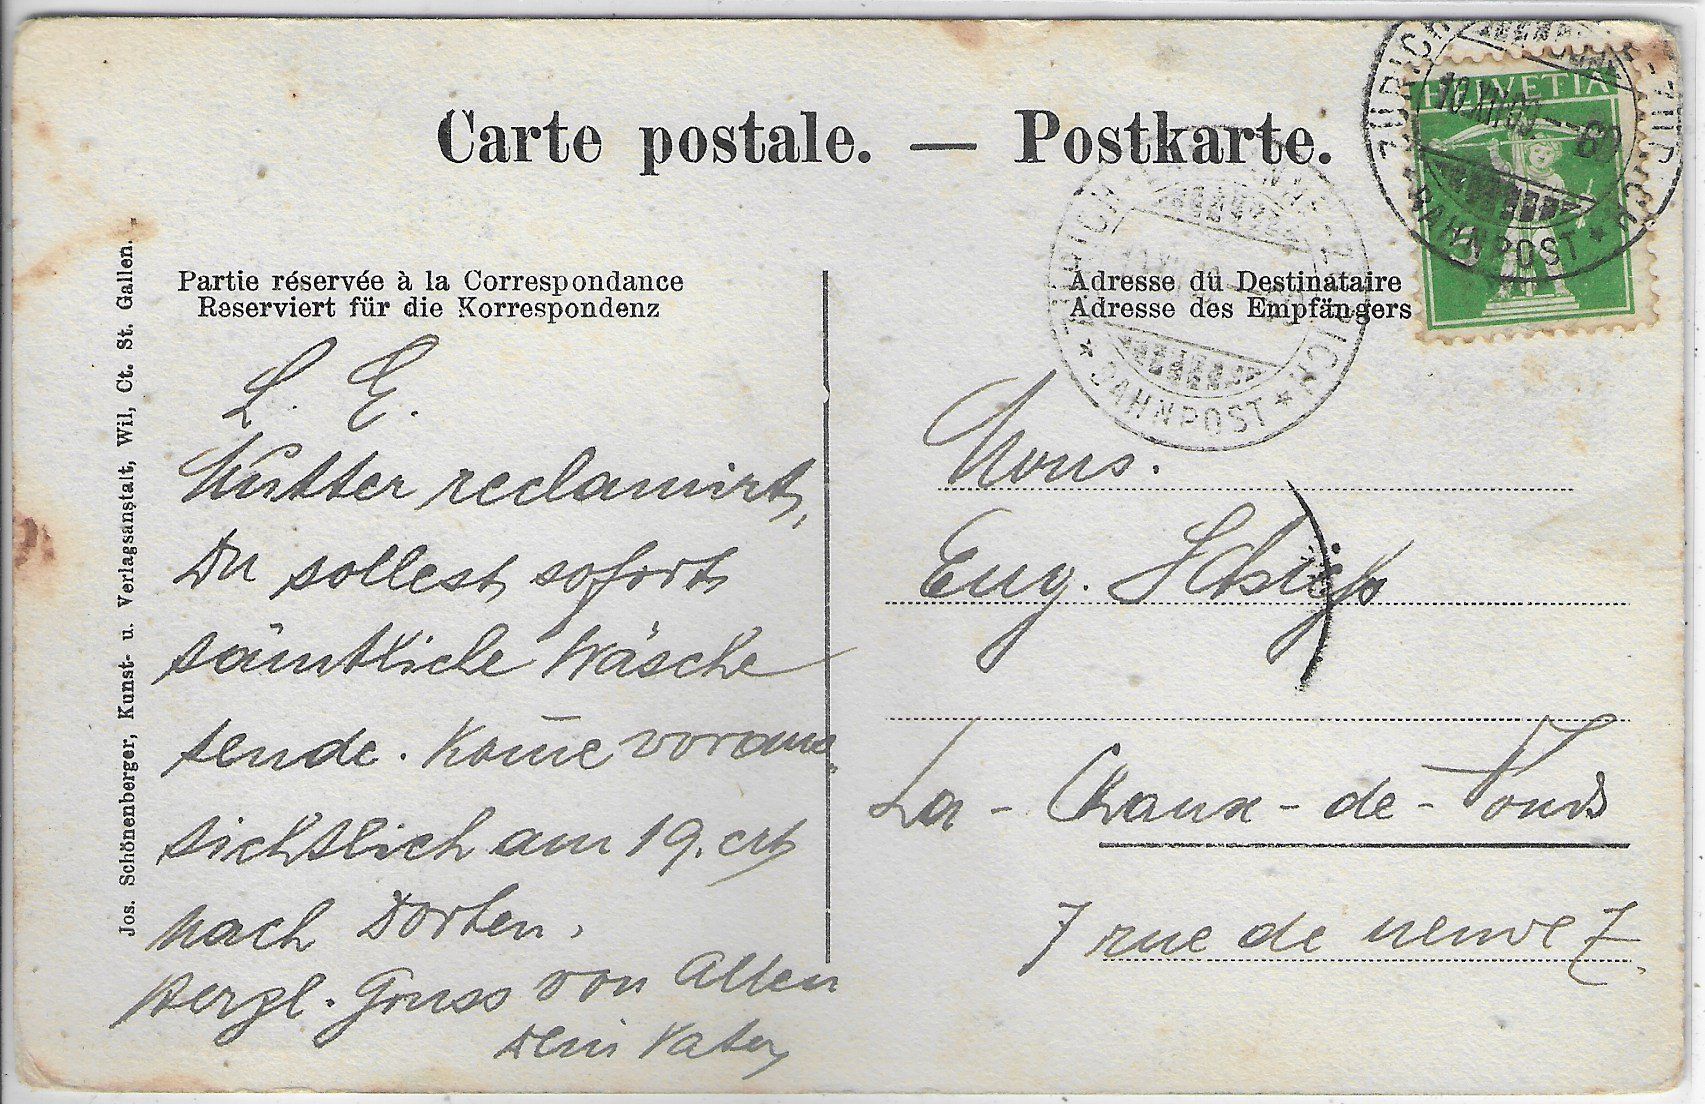 Carte postale. — Postkarte.
Partie réservée à la Correspondance
Reserviert für die Korrespondenz
Adresse du Destinataire
Adresse des Empfängers
Jos. Schönenberger, Kunst- u. Verlagsanstalt, Wil, Ct. St. Gallen.
L. E.
Mutter reclamirt,
Du sollest sofort
sämtliche Wäsche
sende. Kom̄e voraus
sichtlich am 19. crt
nach Dorten.
Herzl. Gruss von Allen
Dein Vater
Mons.
Eug. Schiess
La - Chaux - de - Fonds
7 rue de neuve 7.
HELVETIA
5
ZÜRICH
ZÜRICH
10.XII.09 — 6
★ BAHNPOST ★
ZÜRICH
ZÜRICH
★ BAHNPOST ★